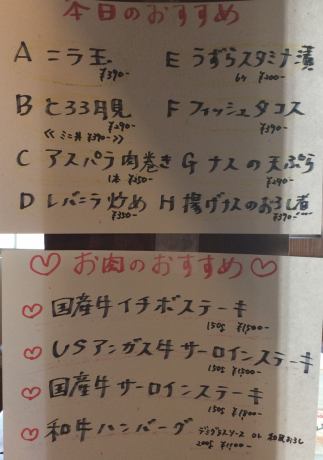 本日のおすすめ
A ニラ玉 ¥390-
E うずらスタミナ漬 6ケ ¥200-
B とろろ月見 ¥290-
≪ミニ丼 ¥390-≫
F フィッシュタコス ¥390-
C アスパラ肉巻き 1本 ¥250-
G ナスの天ぷら ¥290-
D レバニラ炒め ¥350-
H 揚げナスのおろし煮 ¥390-
♡お肉のおすすめ♡
♡ 国産牛イチボステーキ
150g ¥1500-
♡ USアンガス牛サーロインステーキ
150g ¥1500-
♡ 国産牛サーロインステーキ
150g ¥1800-
♡ 和牛ハンバーグ デミグラスソース or 和風おろし
200g